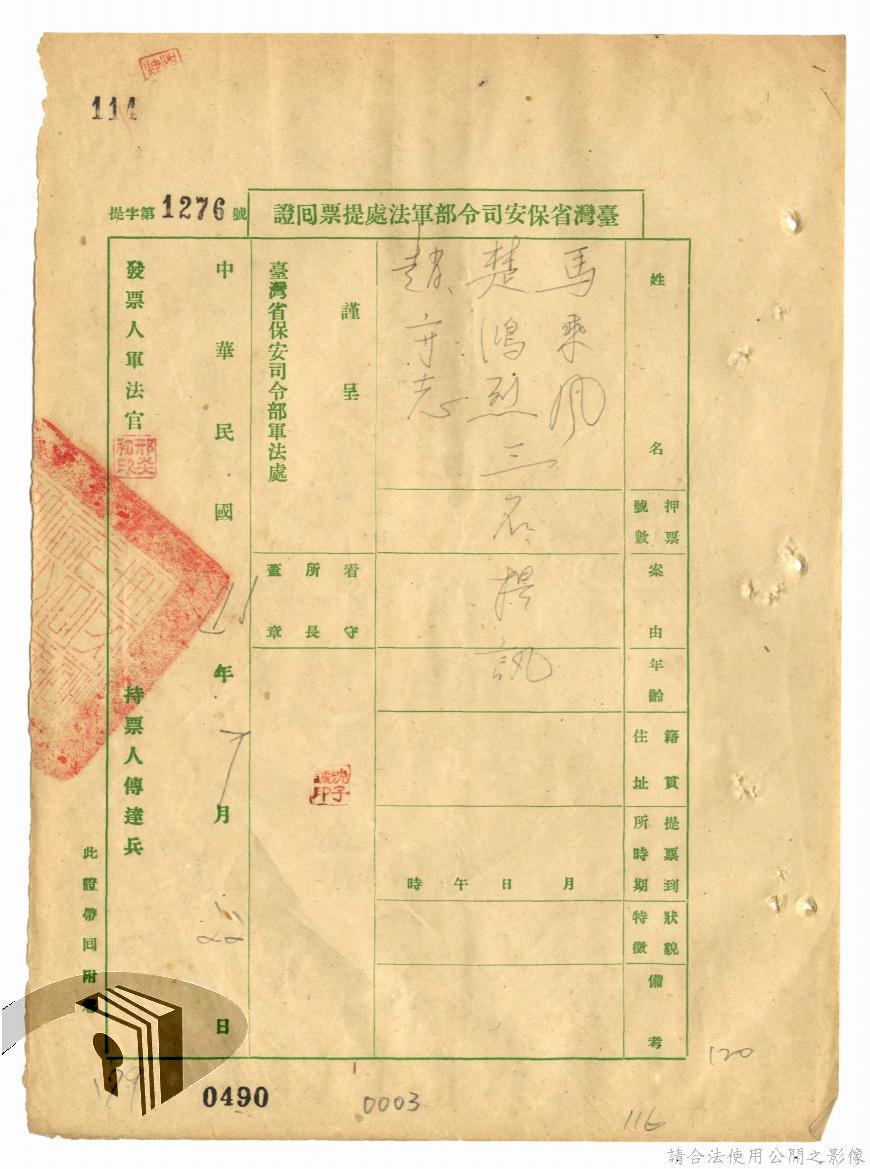 114
提字第1276號
臺灣省保安司令部軍法處提票回證
姓名
馬乘風
楚鴻烈 三名提訊
趙守志
押票號數
案由
年齡
籍貫住址
提票到所時期
月 日 午 時
狀貌特徵
備考
謹呈
臺灣省保安司令部軍法處
看守所長蓋章
沈子誠印
中華民國 年 7 月 22 日
發票人軍法官
邢炎初印
持票人傳達兵
此證帶回附卷
0490
0003
116
120
請合法使用公開之影像